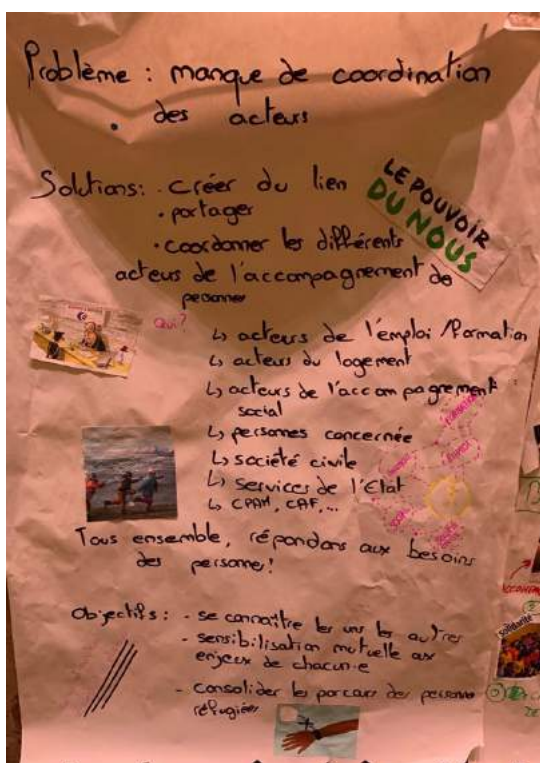 Problème : manque de coordination
des acteurs
Solutions : . créer du lien
. partager
. coordonner les différents
acteurs de l'accompagnement de
personnes
LE POUVOIR
DU NOUS
Qui?
↳ acteurs de l'emploi / Formation
↳ acteurs du logement
↳ acteurs de l'accompagnement
social
↳ personnes concernée
↳ société civile
↳ Services de l'Etat
↳ CPAM, CAF,...
Tous ensemble, répondons aux besoins
des personnes!
Objectifs : - se connaître les uns les autres
- sensibilisation mutuelle aux
enjeux de chacun·e
- consolider les parcours des personnes
réfugiées
Solidarité